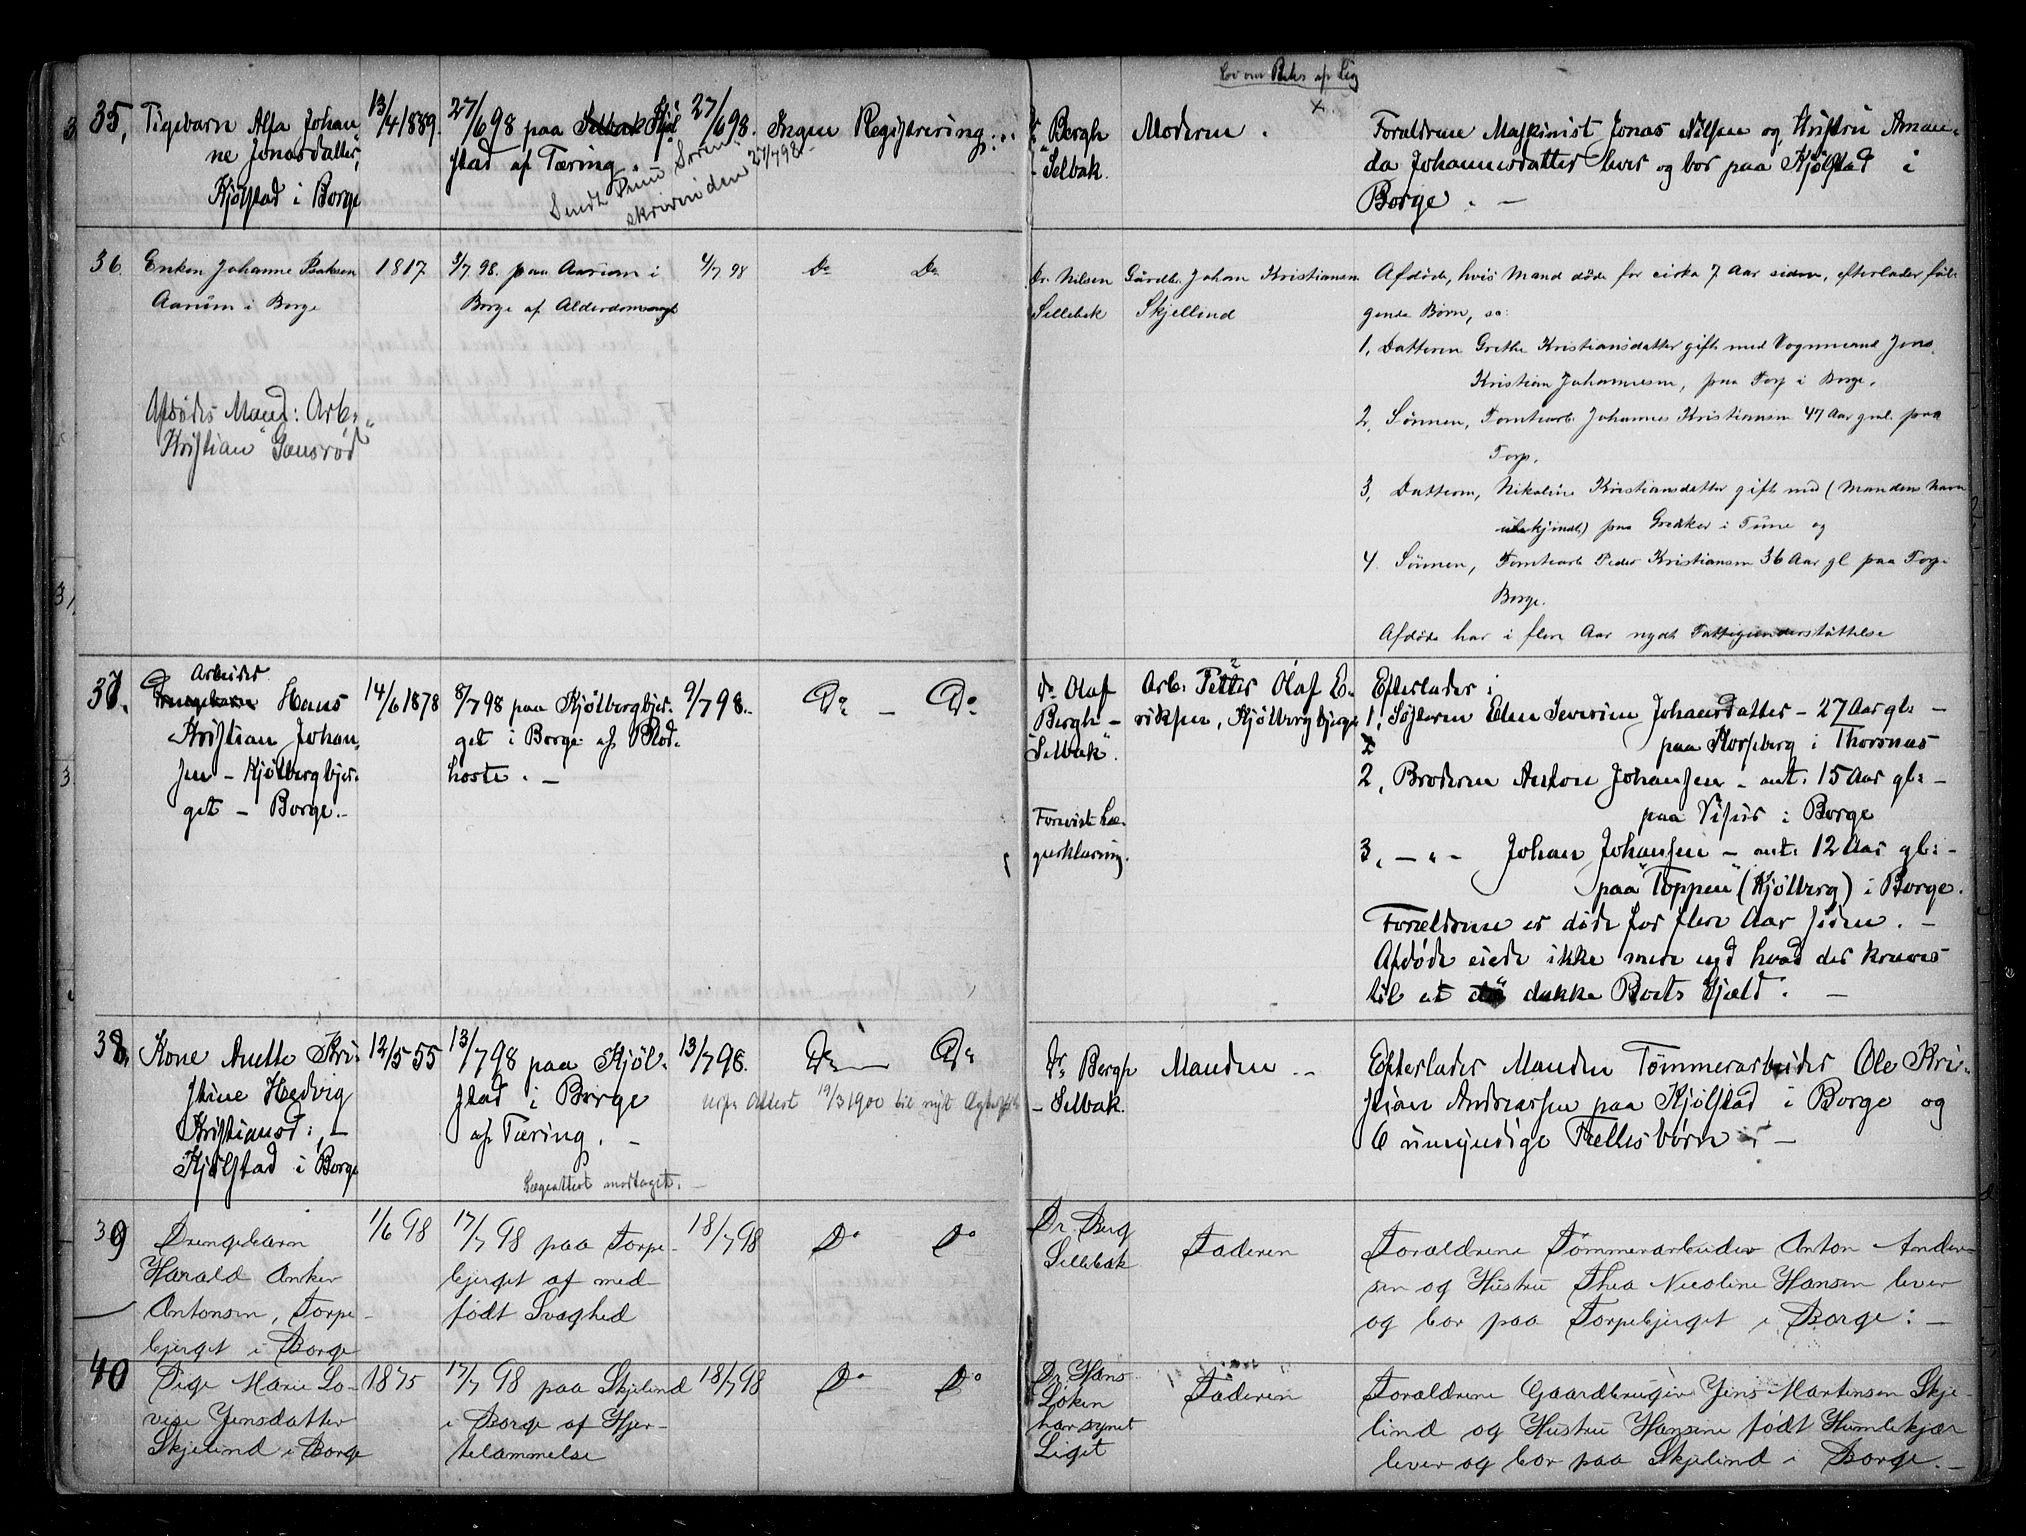 35, Pigebarn Alfa Johan-
ne Jonasdatter,
Kjølstad i Borge
13/4 1889.
27/6 98 paa Selbak Kjøl
stad af Tæring.
27/6 98.
Ingen Registrering
skriveren den 27/7 98
Bergh
Selbak.
Moderen.
Forældrene Maskinist Jonas Nilsen og Hustru Aman-
da Johannesdatter lever og bor paa Kjølstad i
Borge. —
36. Enken Johanne Isaksen
Aarum i Borge
Afdødes Mand: Arb.
Kristian "Gansrød"
1817
3/7 98. paa Aarum i
Borge af Alderdomssvagh
4/7 98
Do Do
Dr. Nilsen
Sellebak
Gårdbr. Johan Kristiansen
Skjellind
Afdøde, hvis Mand døde for cirka 7 Aar siden, efterlader føl-
gende Børn, so:
1, Datteren Grethe Kristiansdatter gift med Vognmand Jens
Kristian Johannesen, paa Torp i Borge.
2, Sønnen, Tomtearb. Johannes Kristiansen 47 Aar gml. paa
Torp,
3, Datteren, Nikoline Kristiansdatter gift med (Mandens Navn
ubekjendt) paa Greaker i Tune og
4. Sønnen, Tomtearb Peder Kristiansen 36 Aar gl paa Torp i
Borge.
Afdøde har i flere Aar nydt Fattigunderstøttelse
37. Arbeider
Drengebarn Hans
Kristian Johan-
sen – Kjølbergbjer-
get – Borge.
14/6 1878
8/7 98 paa Kjølbergbjer-
get i Borge af Blod-
hoste. —
9/7 98.
Do — Do
Dr. Olaf
Bergh –
"Selbak".
Forevist Læ-
geerklæring.
Arb. Petter Olaf E-
riksen, Kjølbergbjerget
Efterlader:
1, Søsteren Elen Severine Johansdatter – 27 Aar gl: –
paa Korseberg i Thorsnæs
2, Broderen Anton Johansen – ant. 15 Aar gl: –
paa Visur i Borge
3, — " — Johan Johansen – ant. 12 Aar gl: –
paa "Toppen" (Kjølberg) i Borge.
Forældrene er døde for flere Aar siden. –
Afdøde eiede ikke mere end hvad der kræves
til at dække Boets Gjæld. —
38. Kone Anette Kri-
stine Hedvig
Kristiansd:, –
Kjølstad i Borge
12/5 55
13/7 98 paa Kjøl-
stad i Borge
af Tæring. –
Lægeattest modtaget. –
13/7 98.
Do — Do
Attest 19/3 1900 til nyt
Dr Bergh
– Selbak.
Manden. –
Efterlader Manden Tømmerarbeider Ole Kri-
stian Andreassen paa Kjølstad i Borge og
6 umyndige Fællesbørn. —
39 Drengebarn
Harald Anker
Antonsen, Torpe-
bjerget i Borge
1/6 98
17/7 98 paa Torpe-
bjerget af med-
født Svaghed
18/7 98
Do Do
Dr. Berg
Sellebak
Faderen
Forældrene Tømmerarbeider Anton Ander-
sen og Hustru Thea Nicoline Hansen lever
og bor paa Torpebjerget i Borge: —
40 Pige Marie Lo-
vise Jensdatter
Skjelind i Borge
1875
17/7 98 paa Skjelind
i Borge af Hjer-
telammelse
18/7 98
Do Do
Dr. Hans
Løken
har synet
Liget
Faderen
Forældrene Gaardbruger Jens Martensen Skje-
lind og Hustru Hansine født Humlekjær
lever og bor paa Skjelind i Borge. —